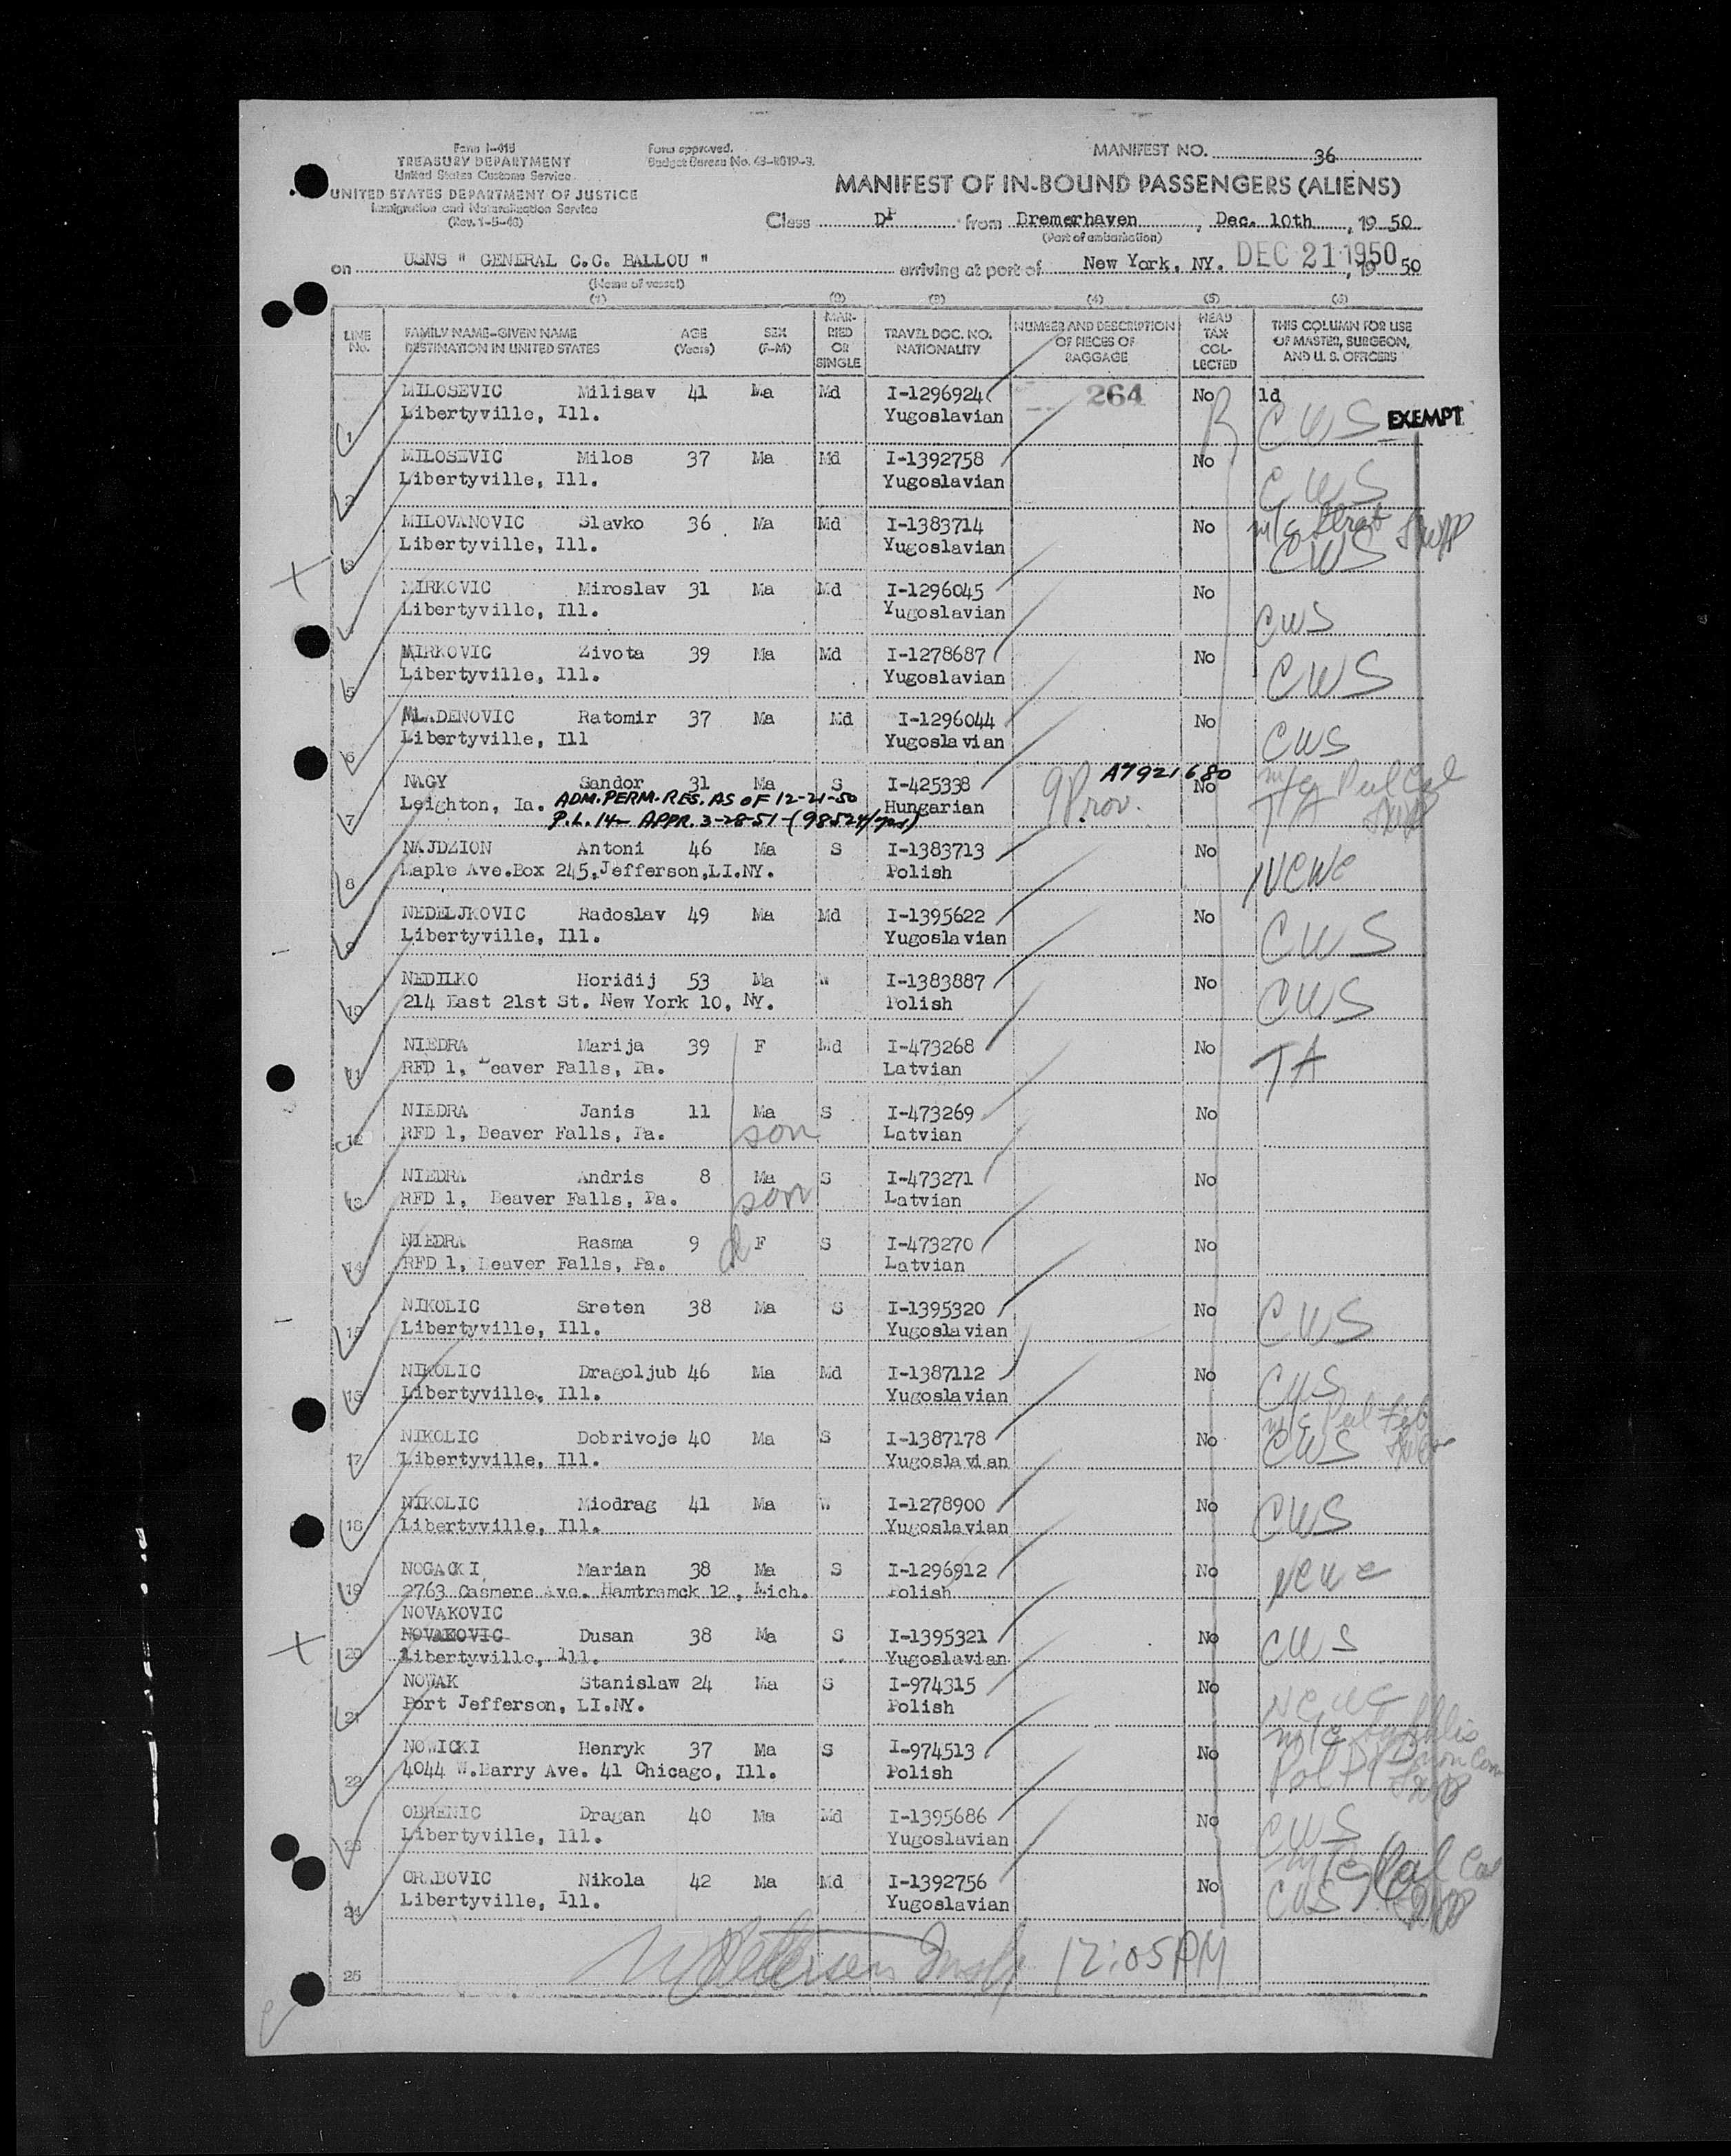 Form I-415
TREASURY DEPARTMENT
United States Customs Service
UNITED STATES DEPARTMENT OF JUSTICE
Immigration and Naturalization Service
(Rev. 1-5-48)
Form approved.
Budget Bureau No. 43-R019-3.
MANIFEST NO. 36
MANIFEST OF IN-BOUND PASSENGERS (ALIENS)
Class DP from Bremerhaven, Dec. 10th, 19 50
(Port of embarkation)
on USNS " GENERAL C.C. BALLOU " arriving at port of New York, NY. DEC 21 1950, 19 50
(Name of vessel)
(1) (2) (3) (4) (5) (6)
LINE No. FAMILY NAME-GIVEN NAME DESTINATION IN UNITED STATES AGE (Years) SEX (F-M) MARRIED OR SINGLE TRAVEL DOC. NO. NATIONALITY NUMBER AND DESCRIPTION OF PIECES OF BAGGAGE HEAD TAX COLLECTED THIS COLUMN FOR USE OF MASTER, SURGEON, AND U. S. OFFICERS
1 MILOSEVIC Milisav 41 Ma Md I-1296924 264 No ld
Libertyville, Ill. Yugoslavian CWS EXEMPT
2 MILOSEVIC Milos 37 Ma Md I-1392758 No
Libertyville, Ill. Yugoslavian CWS
3 MILOVANOVIC Slavko 36 Ma Md I-1383714 No
Libertyville, Ill. Yugoslavian CWS
4 MIRKOVIC Miroslav 31 Ma Md I-1296045 No
Libertyville, Ill. Yugoslavian CWS
5 MIRKOVIC Zivota 39 Ma Md I-1278687 No
Libertyville, Ill. Yugoslavian CWS
6 MLADENOVIC Ratomir 37 Ma Md I-1296044 No
Libertyville, Ill Yugoslavian CWS
7 NAGY Sandor 31 Ma S I-425338 A7921680 No
Leighton, Ia. ADM. PERM. RES. AS OF 12-21-50 Hungarian TA
P.L. 14- APPR. 3-28-51-
8 NAJDZION Antoni 46 Ma S I-1383713 No
Maple Ave.Box 245,Jefferson,LI.NY. Polish NCWC
9 NEDELJKOVIC Radoslav 49 Ma Md I-1395622 No
Libertyville, Ill. Yugoslavian CWS
10 NEDILKO Horidij 53 Ma W I-1383887 No
214 East 21st St. New York 10, NY. Polish CWS
11 NIEDRA Marija 39 F Md I-473268 No
RFD 1, Beaver Falls, Pa. Latvian TA
12 NIEDRA Janis 11 Ma S I-473269 No
RFD 1, Beaver Falls, Pa. son Latvian
13 NIEDRA Andris 8 Ma S I-473271 No
RFD 1, Beaver Falls, Pa. son Latvian
14 NIEDRA Rasma 9 d F S I-473270 No
RFD 1, Beaver Falls, Pa. Latvian
15 NIKOLIC Sreten 38 Ma S I-1395320 No
Libertyville, Ill. Yugoslavian CWS
16 NIKOLIC Dragoljub 46 Ma Md I-1387112 No
Libertyville, Ill. Yugoslavian CWS
17 NIKOLIC Dobrivoje 40 Ma S I-1387178 No
Libertyville, Ill. Yugoslavian CWS
18 NIKOLIC Miodrag 41 Ma W I-1278900 No
Libertyville, Ill. Yugoslavian CWS
19 NOGACKI Marian 38 Ma S I-1296912 No
2763 Casmere Ave. Hamtramck 12, Mich. Polish NCWC
NOVAKOVIC
20 NOVAKOVIC Dusan 38 Ma S I-1395321 No
Libertyville, Ill. Yugoslavian CWS
21 NOWAK Stanislaw 24 Ma S I-974315 No
Port Jefferson, LI.NY. Polish NCWC
22 NOWICKI Henryk 37 Ma S I-974513 No
4044 W.Barry Ave. 41 Chicago, Ill. Polish
23 OBRENIC Dragan 40 Ma Md I-1395686 No
Libertyville, Ill. Yugoslavian CWS
24 ORABOVIC Nikola 42 Ma Md I-1392756 No
Libertyville, Ill. Yugoslavian CWS
25 12:05 PM